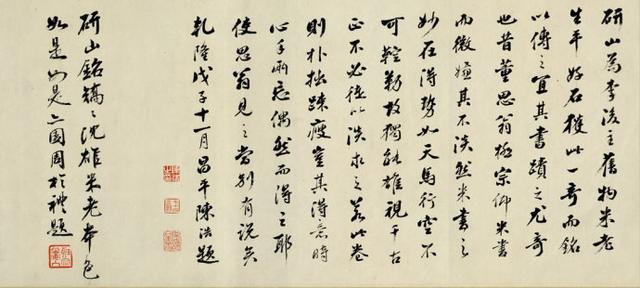 研山為李後主舊物米老
生平好石獲此一奇而銘
以傳之宜其書蹟之尤奇
也昔董思翁極宗仰米書
而微嫌其不淡然米書之
妙在得勢如天馬行空不
可鞚勒故獨能雄視千古
正不必徒以淡求之若此卷
則朴拙疎瘦豈其得意時
心手兩忘偶然而得之耶
使思翁見之當別有說矣
乾隆戊子十一月昌平陳浩題
研山銘鏑〻沈雄米老本色
如是如是亦園周於禮題